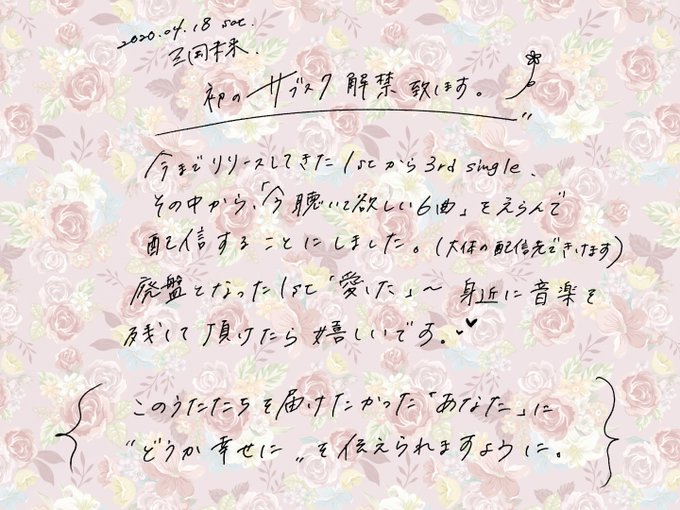 2020.04.18 sat.
三国未来.
初のサブスク解禁致します。
今までリリースしてきた1stから3rd single、
その中から、「今聴いて欲しい6曲」をえらんで
配信することにしました。(大体の配信先できけます)
廃盤となった1st「愛した」〜 身近に音楽を
残して頂けたら嬉しいです。
このうたたちを届けたかった「あなた」に
"どうか幸せに"を伝えられますように。